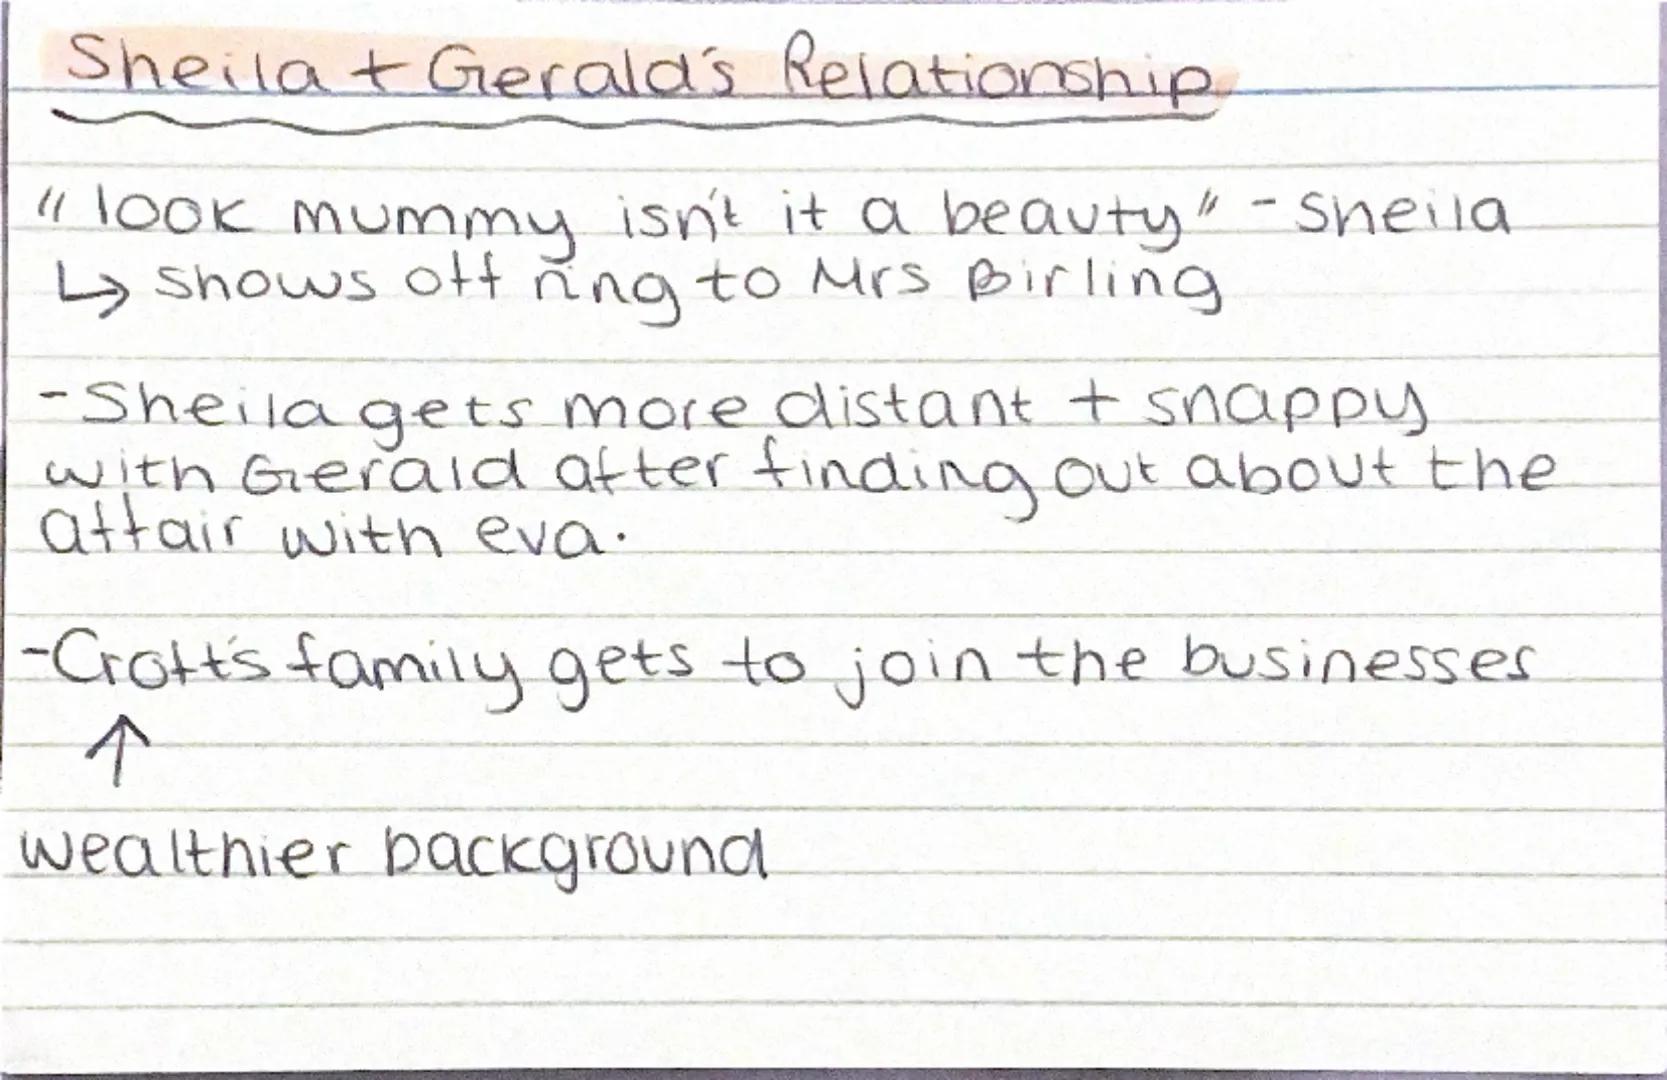 Sheila + Gerald's Relationship
"look mummy isn't it a beauty" - Sheila
↳ shows off ring to Mrs Birling
- Sheila gets more distant + snappy
with Gerald after finding out about the
affair with eva.
- Croft's family gets to join the businesses
↑
wealthier background